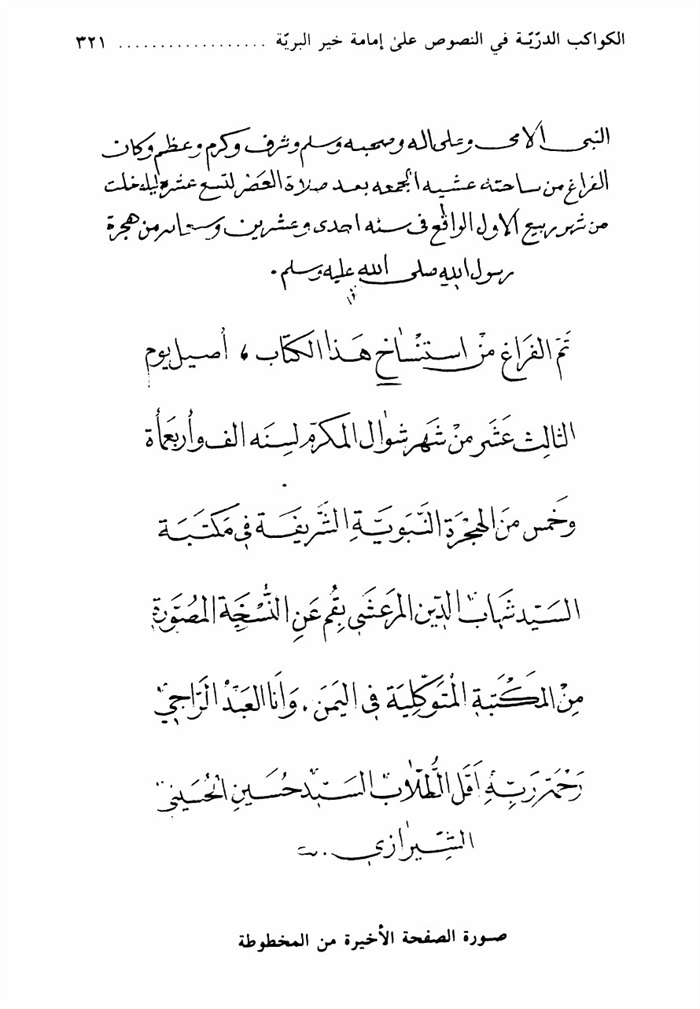 الكواكب الدرّيّة في النصوص على إمامة خير البريّة .................. ٣٢١
النبي الامي وعلى اله وصحبه وسلم وشرف وكرم وعظم وكان
الفراغ من ساحته عشيه الجمعه بعد صلاة العصر لتسع عشره ليله خلت
من شهر ربيع الاول الواقع في سنه احدى وعشرين من هجرة
رسول الله صلى الله عليه وسلم .
تَمّ الفَرَاغ مِنْ استنْسَاخ هَذا الكتَاب ، أصيل يوم
الثالِث عَشَر مِنْ شَهر شوال المكرم لسِنَه الف وأربعمأة
وخَمس مِنَ الهِجْرَة النَّبَويّةِ الشَّريفَة في مَكتَبَة
السَيّد شَهاب الدّين المرعَشي بِقُم عَنِ النُّسْخَة المُصَوّرة
مِنْ المَكْتَبة المتَوَكِّلية في اليَمَن . وَأنا العَبْدُ الرّاجي
رَحْمَة رَبّهِ أقَل الطُّلاب السَيّد حُسَين الحُسَيني
الشيرازي .
صورة الصفحة الأخيرة من المخطوطة